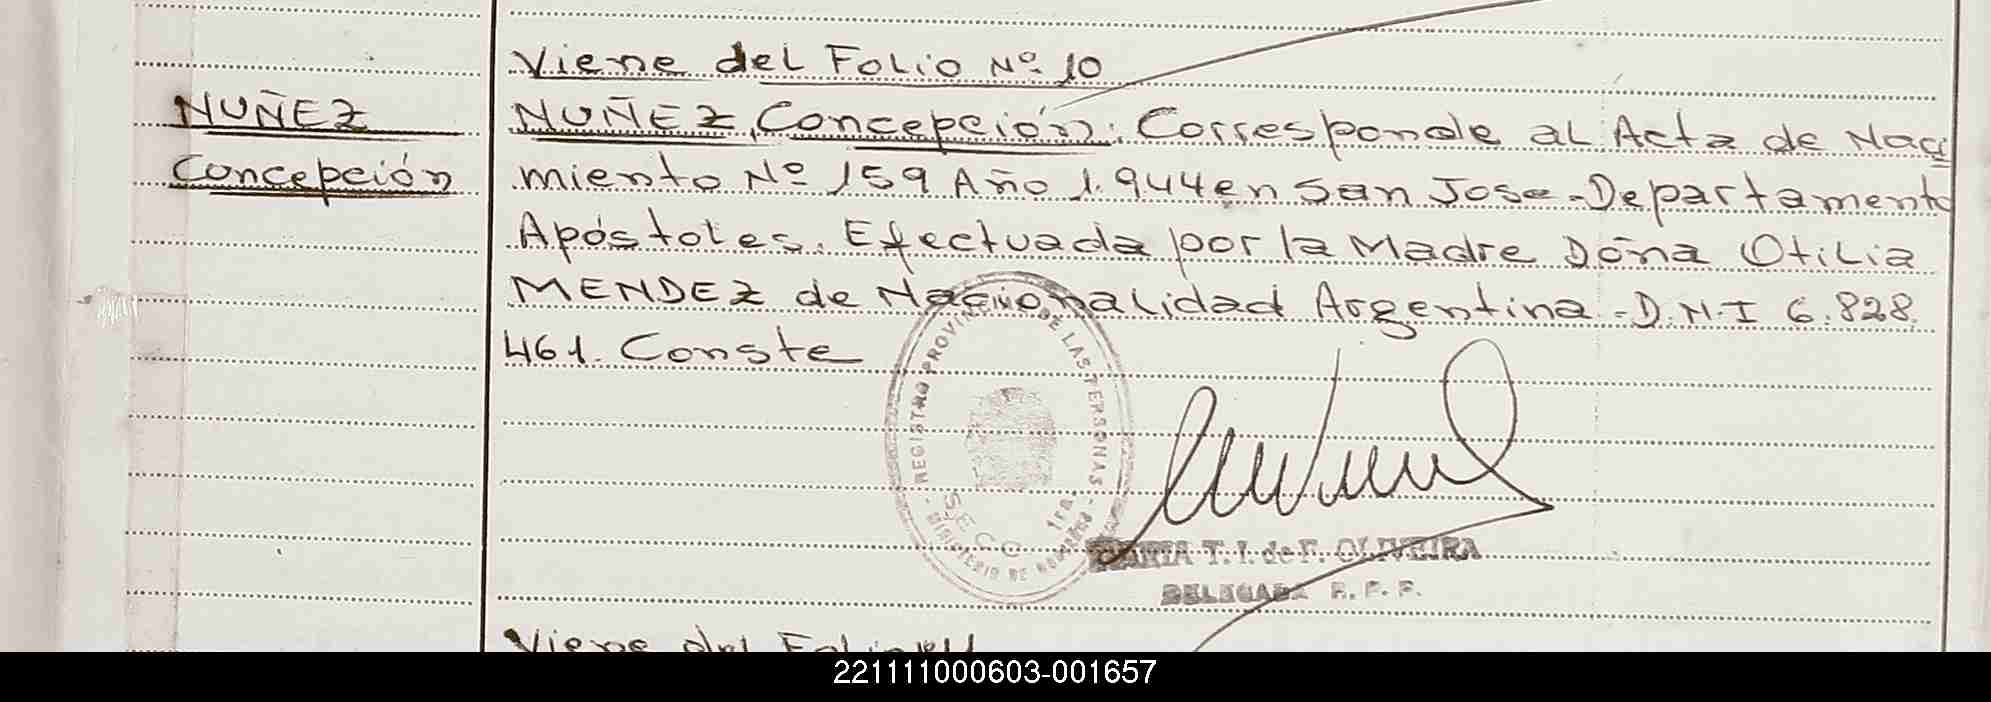 Viene del Folio Nº 10
NUÑEZ
Concepción
NUÑEZ, Concepción. Corresponde al Acta de Naci
miento Nº 159 Año 1.944 en San Jose - Departamento
Apóstoles. Efectuada por la Madre Doña Otilia
MENDEZ de Nacionalidad Argentina - D.N.I 6.828.
461. Conste
REGISTRO PROVINCIAL DE LAS PERSONAS
SECC 1ra.
MINISTERIO DE
MARIA T. I. de F. OLIVEIRA
DELEGADA R. P. P.
Viene del Folio
221111000603-001657